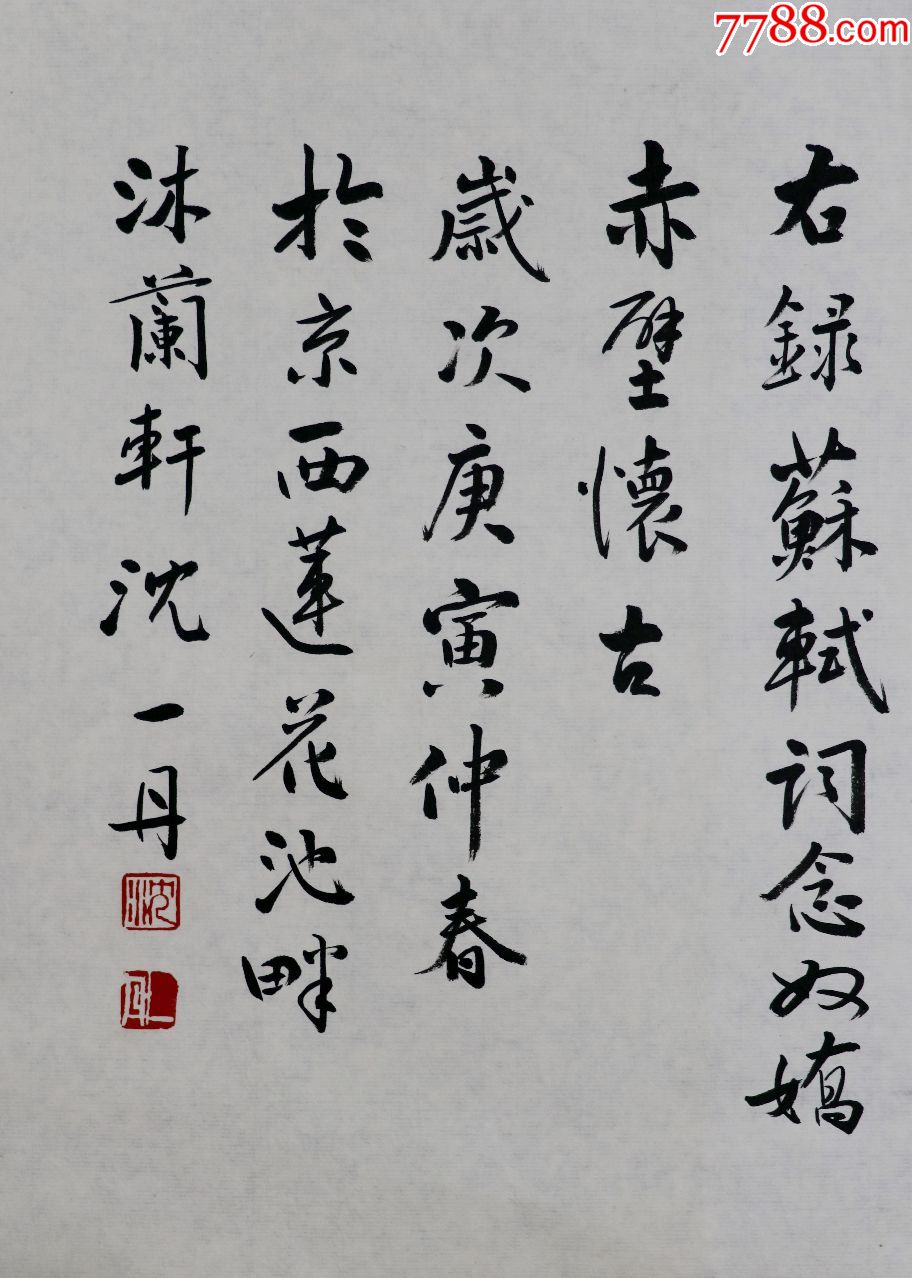 7788.com
右録蘇軾詞念奴嬌
赤壁懷古
歲次庚寅仲春
於京西蓮花池畔
沐蘭軒沈一丹
沈
一丹